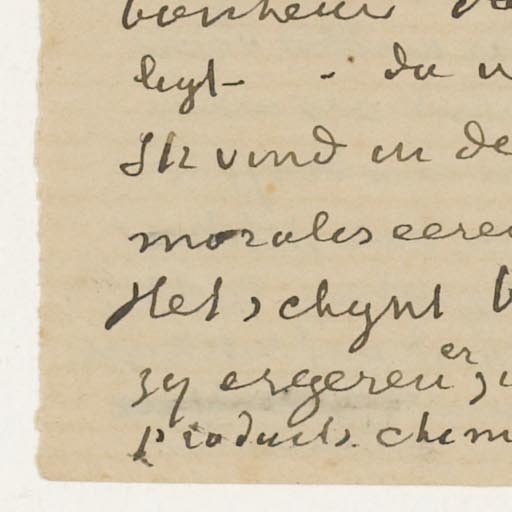 bonheur
legt - . da
Ik vind in de
moraliseeren
Het schynt
zy ergeren er,
produits chem